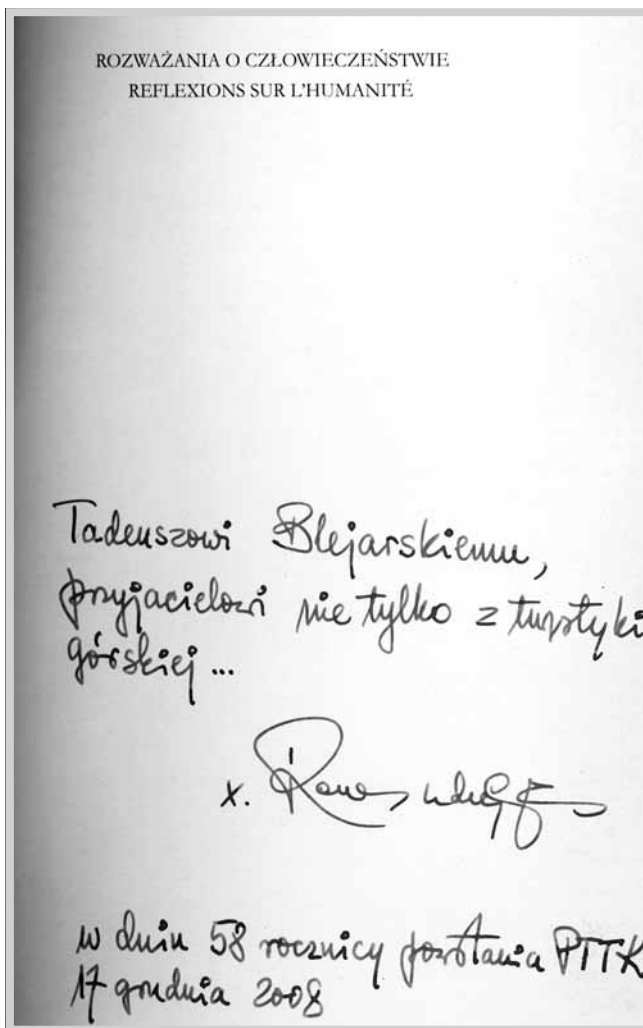 ROZWAŻANIA O CZŁOWIECZEŃSTWIE
REFLEXIONS SUR L'HUMANITÉ
Tadeuszowi Blejarskiemu,
przyjacielowi nie tylko z turystyki
górskiej...
x.
w dniu 58 rocznicy powstania PTTK
17 grudnia 2008